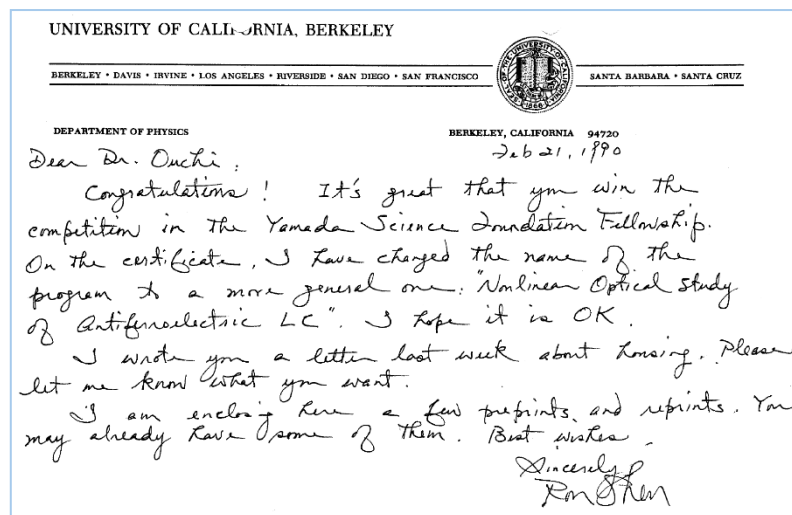 UNIVERSITY OF CALIFORNIA, BERKELEY
BERKELEY • DAVIS • IRVINE • LOS ANGELES • RIVERSIDE • SAN DIEGO • SAN FRANCISCO SANTA BARBARA • SANTA CRUZ
SEAL OF THE UNIVERSITY OF CALIFORNIA 1868
DEPARTMENT OF PHYSICS BERKELEY, CALIFORNIA 94720
Feb 21, 1990
Dear Dr. Ouchi,
Congratulations! It's great that you win the
competition in the Yamada Science Foundation Fellowship.
On the certificate, I have changed the name of the
program to a more general one: "Nonlinear Optical Study
of Antiferroelectric LC". I hope it is OK.
I wrote you a letter last week about housing. Please
let me know what you want.
I am enclosing here a few preprints and reprints. You
may already have some of them. Best wishes.
Sincerely
Ron Shen